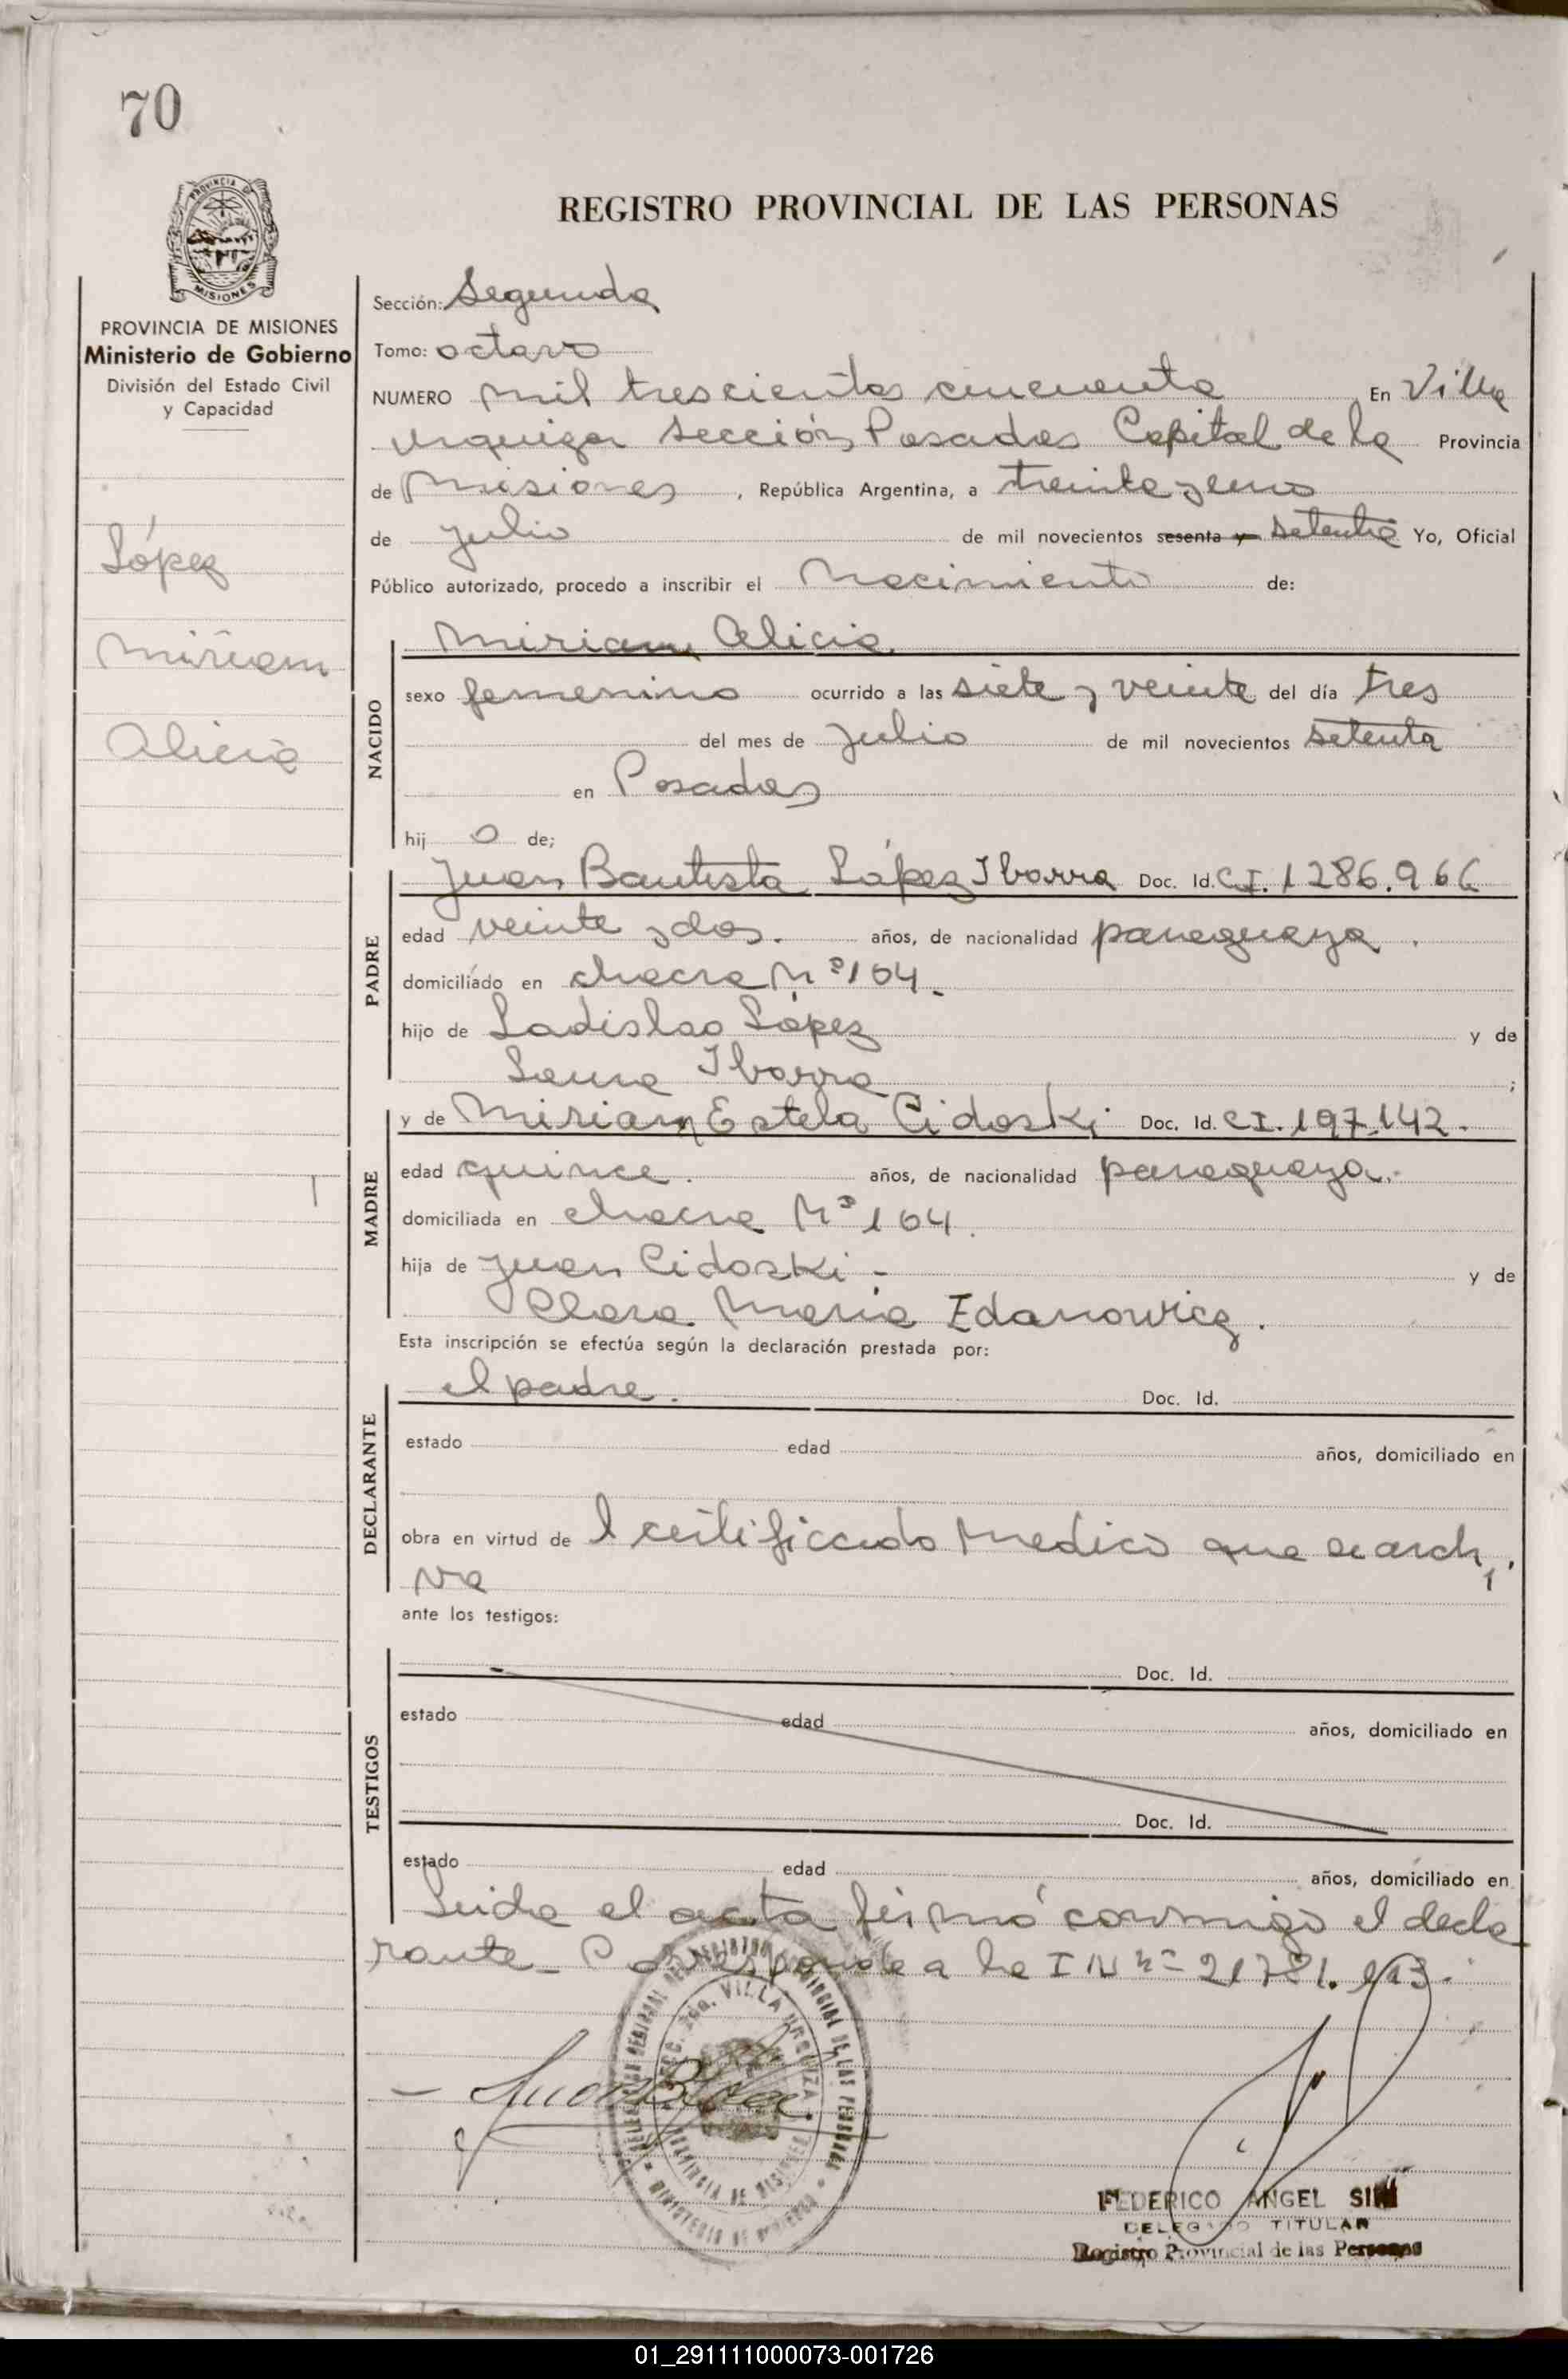 70
REGISTRO PROVINCIAL DE LAS PERSONAS
PROVINCIA DE MISIONES
Ministerio de Gobierno
División del Estado Civil
y Capacidad
López
Miriam
Alicia
Sección: Segunda
Tomo: octavo
NUMERO mil trescientos cincuenta En Villa
Urquiza Sección Posadas Capital de la Provincia
de Misiones, República Argentina, a treinta y uno
de Julio de mil novecientos sesenta y setenta Yo, Oficial
Público autorizado, procedo a inscribir el Nacimiento de:
NACIDO
Miriam Alicia
sexo femenino ocurrido a las siete y veinte del día tres
del mes de Julio de mil novecientos setenta
en Posadas
hij a de;
PADRE
Juan Bautista López Ibarra Doc. Id. C.I. 1286.966
edad veinte y dos. años, de nacionalidad paraguaya.
domiciliado en chacra Nº 164.
hijo de Ladislao López y de
Laura Ibarra ;
MADRE
y de Miriam Estela Cidoski Doc. Id. C.I. 197.142.
edad quince. años, de nacionalidad paraguaya.
domiciliada en chacra Nº 164.
hija de Juan Cidoski - y de
Clara Maria Edanowicz.
Esta inscripción se efectúa según la declaración prestada por:
DECLARANTE
el padre. Doc. Id.
estado edad años, domiciliado en
obra en virtud de l certificado medico que se archi
va
ante los testigos:
TESTIGOS
Doc. Id.
estado edad años, domiciliado en
Doc. Id.
estado edad años, domiciliado en
Leida el acta firmó conmigo el decla
rante - Corresponde a la I Nº 21781.
FEDERICO ANGEL
DELEGADO TITULAR
Registro Provincial de las Personas
01_291111000073-001726